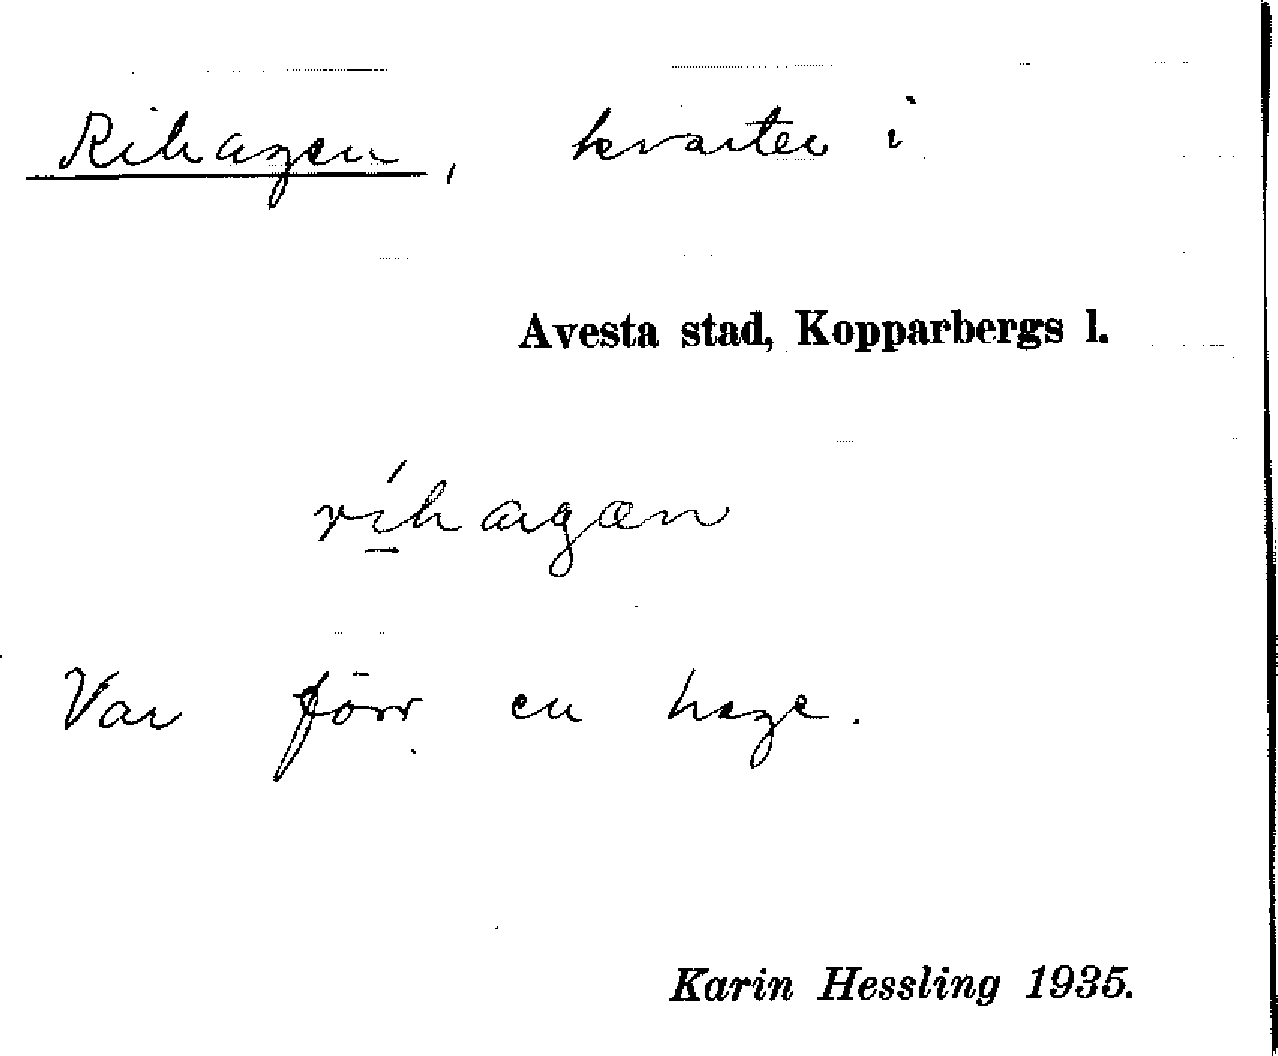 Rihagen, kvarter i
Avesta stad, Kopparbergs l.
ríhagæn
Var förr en hage.
Karin Hessling 1935.